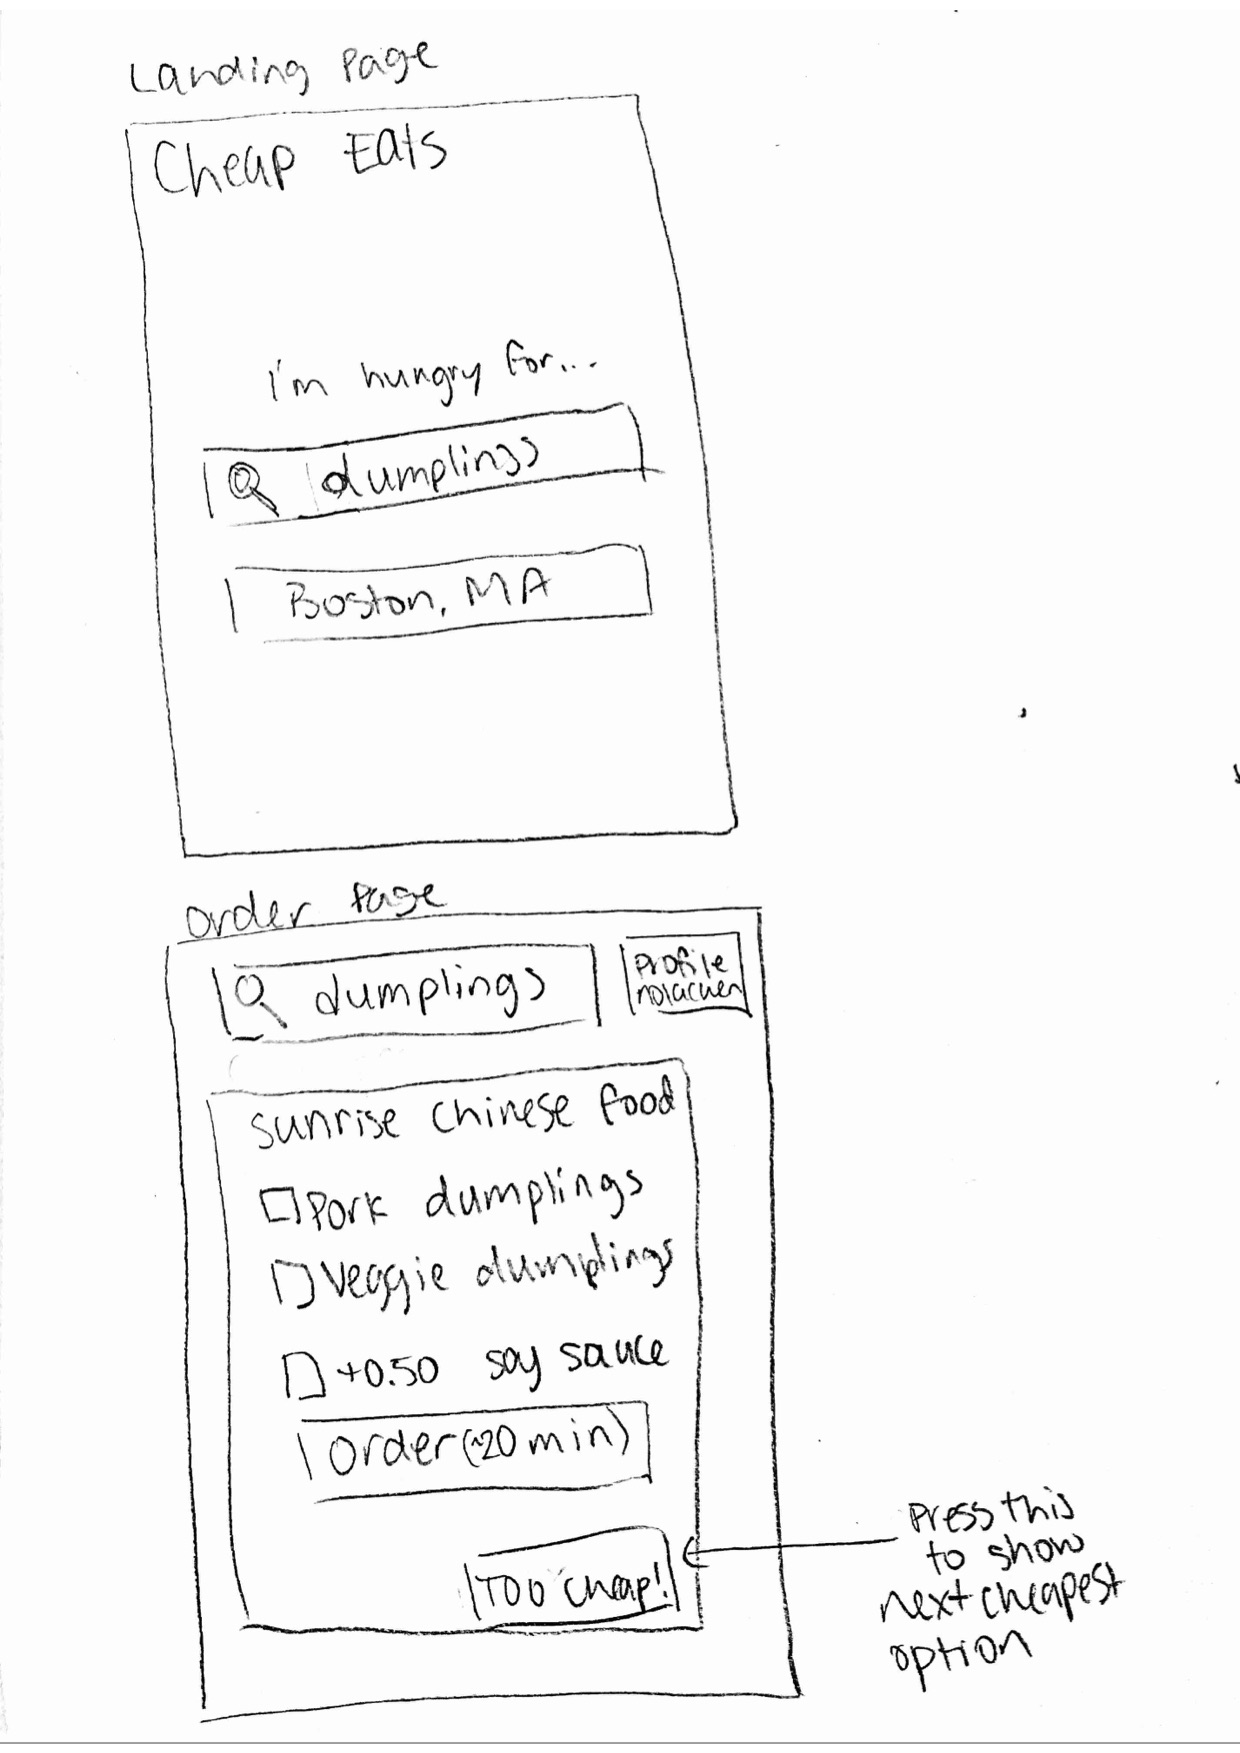 Landing Page
Cheap Eats
i'm hungry for...
dumplings
Boston, MA
order Page
dumplings
Profile
sunrise chinese food
Pork dumplings
Veggie dumplings
+0.50 soy sauce
order (~20 min)
TOO cheap!
Press this
to show
next cheapest
option